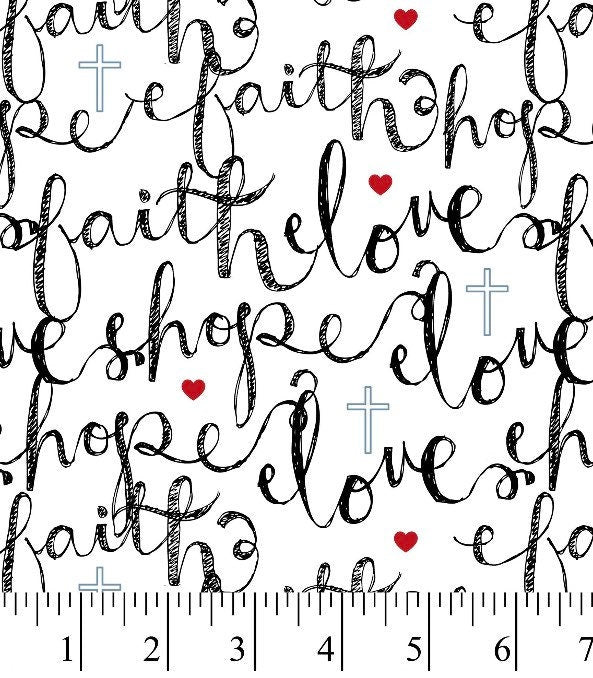 faith
faith hope
faith love
hope love
hope love
faith
1 2 3 4 5 6 7